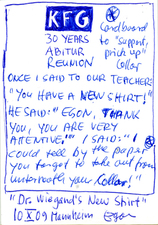 KFG
30 YEARS
ABITUR
REUNION
* Cardboard
to "support,
prick up"
Collar
ONCE I SAID TO OUR TEACHER:
"YOU HAVE A NEW SHIRT!"
HE SAID: "EGON, THANK
YOU, YOU ARE VERY
ATTENTIVE." I SAID: "I
could tell by the paper*
you forgot to take out from
underneath your Collar!"
"Dr. Wiegand's New Shirt"
10 X 09 Mannheim Egon